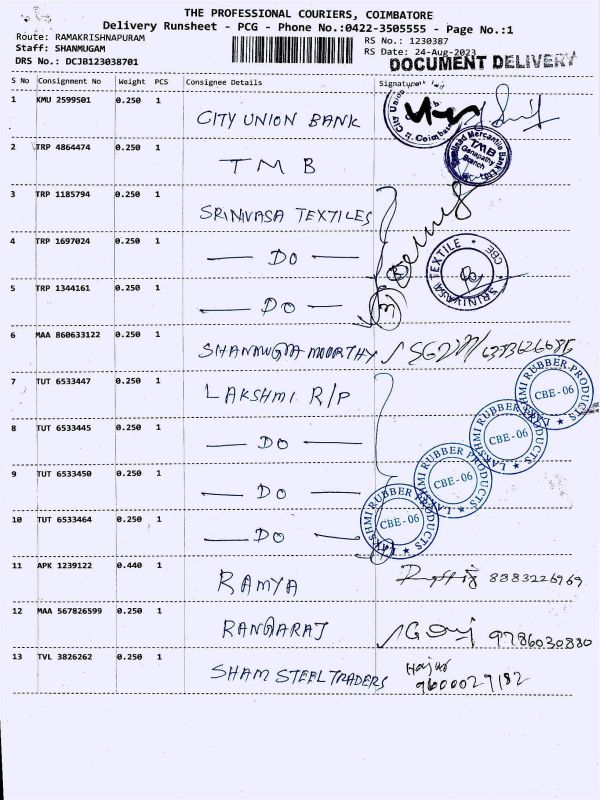 THE PROFESSIONAL COURIERS, COIMBATORE
Delivery Runsheet - PCG - Phone No.:0422-3505555 - Page No.:1
Route: RAMAKRISHNAPURAM
RS No.: 1230387
Staff: SHANMUGAM
RS Date: 24-Aug-2023
DRS No.: DCJB123038701
DOCUMENT DELIVERY
S No Consignment No Weight PCS Consignee Details Signature
1 KMU 2599501 0.250 1 CITY UNION BANK
City Union
Coimba
2 TRP 4864474 0.250 1 TMB
Mercantile Bank Ltd
TMB
Ganapathy
Branch
3 TRP 1185794 0.250 1 SRINIVASA TEXTILES
4 TRP 1697024 0.250 1 — DO —
SRINIVASA TEXTILE ★ CBE ★
5 TRP 1344161 0.250 1 — DO — 3
6 MAA 860633122 0.250 1 SHANMUGA MOORTHY
7 TUT 6533447 0.250 1 LAKSHMI R/P
LAKSHMI RUBBER PRODUCTS ★ CBE-06
8 TUT 6533445 0.250 1 — DO —
LAKSHMI RUBBER PRODUCTS ★ CBE-06
9 TUT 6533450 0.250 1 — DO —
LAKSHMI RUBBER PRODUCTS ★ CBE-06
10 TUT 6533464 0.250 1 — DO —
LAKSHMI RUBBER PRODUCTS ★ CBE-06
11 APK 1239122 0.440 1 RAMYA 8883226969
12 MAA 567826599 0.250 1 RANGARAJ 9786030880
13 TVL 3826262 0.250 1 SHAM STEEL TRADERS
9600029182